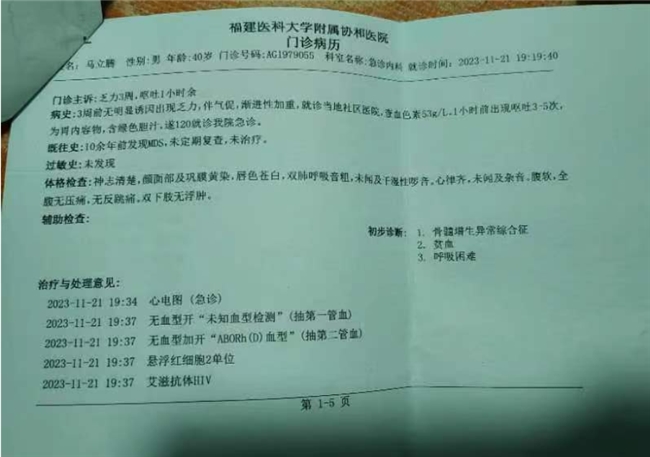 福建医科大学附属协和医院
门诊病历
名: 马立腾 性别:男 年龄:40岁 门诊号码:AG1979055 科室名称:急诊内科 就诊时间:2023-11-21 19:19:40
门诊主诉:乏力3周,呕吐1小时余
病史:3周前无明显诱因出现乏力,伴气促,渐进性加重,就诊当地社区医院,查血色素53g/L.1小时前出现呕吐3-5次,
为胃内容物,含绿色胆汁,遂120就诊我院急诊。
既往史:10余年前发现MDS,未定期复查,未治疗。
过敏史:未发现
体格检查:神志清楚,颜面部及巩膜黄染,唇色苍白,双肺呼吸音粗,未闻及干湿性啰音。心律齐,未闻及杂音。腹软,全
腹无压痛,无反跳痛。双下肢无浮肿。
辅助检查:
初步诊断: 1. 骨髓增生异常综合征
2. 贫血
3. 呼吸困难
治疗与处理意见:
2023-11-21 19:34 心电图(急诊)
2023-11-21 19:37 无血型开“未知血型检测”(抽第一管血)
2023-11-21 19:37 无血型加开“ABORh(D)血型”(抽第二管血)
2023-11-21 19:37 悬浮红细胞2单位
2023-11-21 19:37 艾滋抗体HIV
第 1-5 页